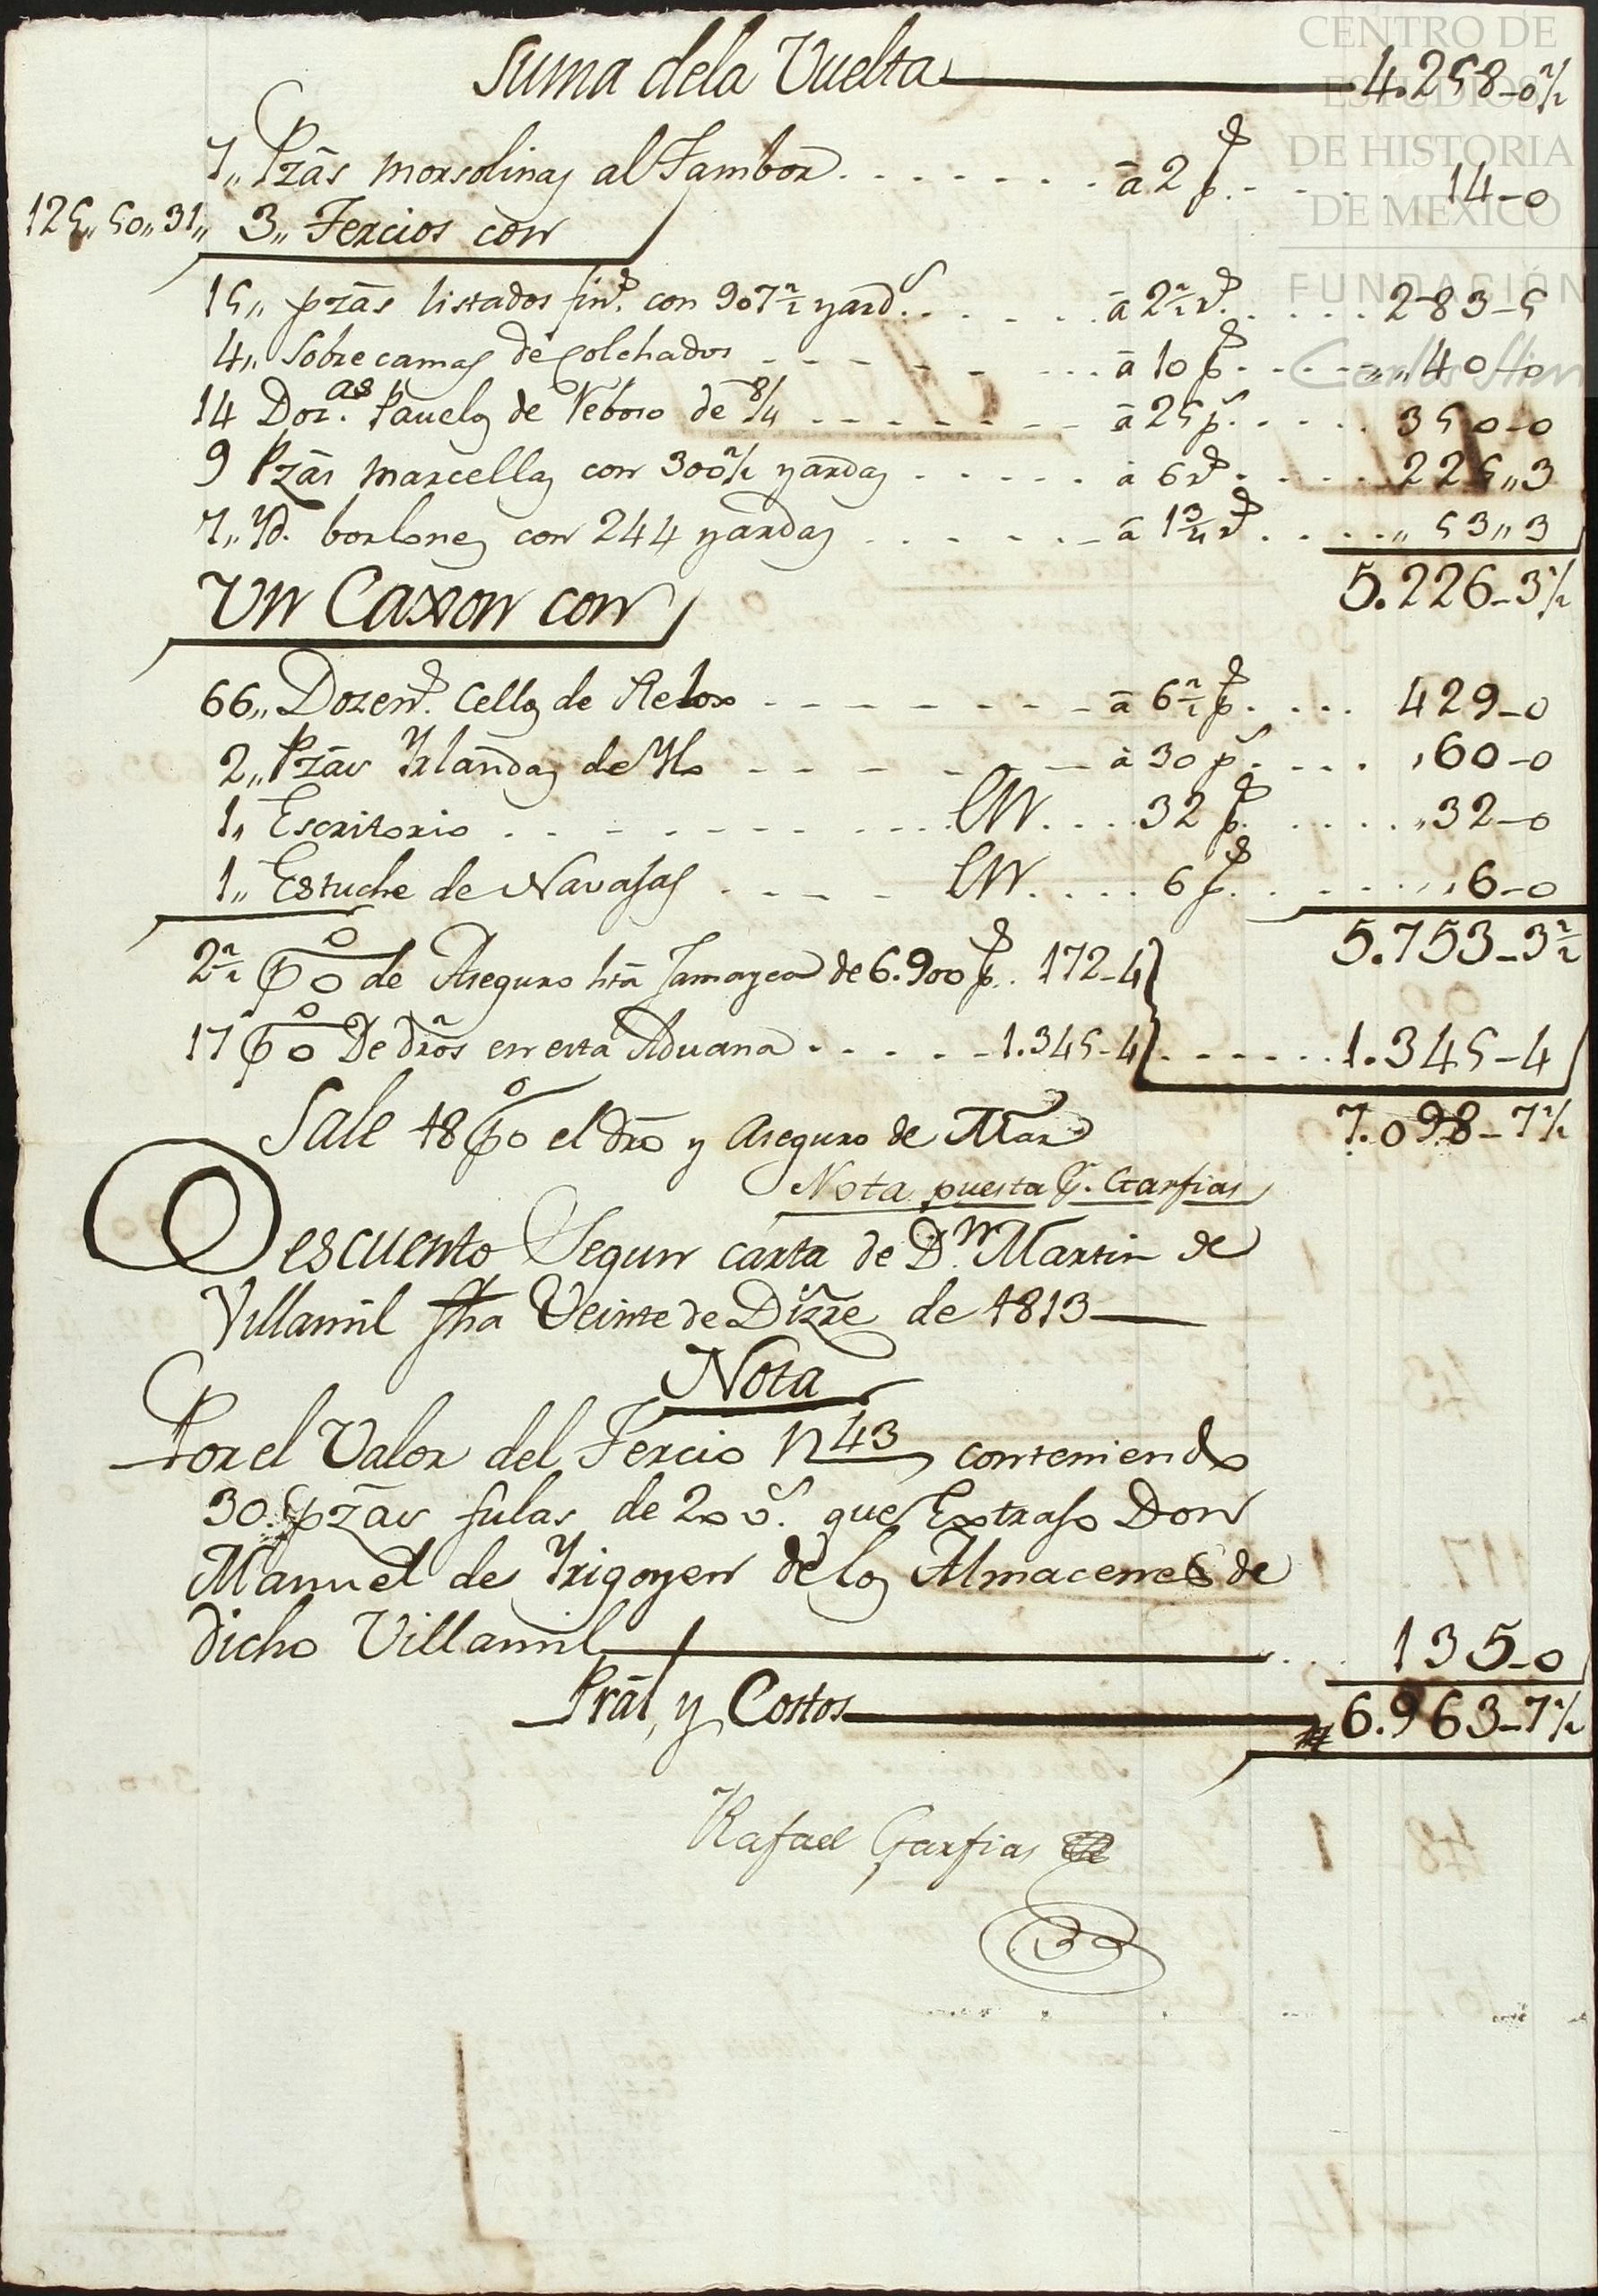 Suma dela Vuelta 4.258-0½
7,, Pzas morsolinas al Tambor . . . . a 2 ps. . . . 14-0
125,, 50,, 31,, 3,, Tercios con
15,, pzas listados fins. con 907½ yards. . . . a 2½ rs. . . . 283-5
4,, Sobrecamas de colchados . . . a 10 ps. . . . 40-0
14 Dozas. Pauelos de Reboso de 8/4 . . . a 25 ps. . . . 350-0
9 Pzas marcellas con 300½ yardas . . . a 6 rs. . . . 225,,3
7,, Yd. borlones con 244 yardas . . . a 1¾ rs . . . 53,,3
5.226-3½
Un Caxon con
66,, Dozens. Cellos de Relox . . . a 6½ ps. . . . 429-0
2,, Pzas Yrlandas de Ylo . . . a 30 ps. . . . 60-0
1,, Escritorio . . . en . . . 32 ps. . . . 32-0
1,, Estuche de Navajas . . . en . . . 6 ps. . . . 6-0
5.753-3½
2½ p%o de Aseguro hta Jamayca de 6.900 ps. . 172-4
17 p%o De dros en esta Aduana . . . 1.345-4 . . . 1.345-4
Sale 18 p%o el dro y Aseguro de Mar 7.098-7½
Nota puesta p. Garfias
Descuento Segun carta de Dn. Martin de
Villamil fha Veinte de Dizre de 1813
Nota
Por el Valor del Tercio N 43 conteniendo
30 pzas fulas de 200s. que Extrajo Don
Manuel de Yrigoyen delos Almacenes de
dicho Villamil . . . 135-0
Pral, y Costos 6.963-7½
Rafael Garfias
CENTRO DE
ESTUDIOS
DE HISTORIA
DE MEXICO
FUNDACIÓN
Carlos Slim